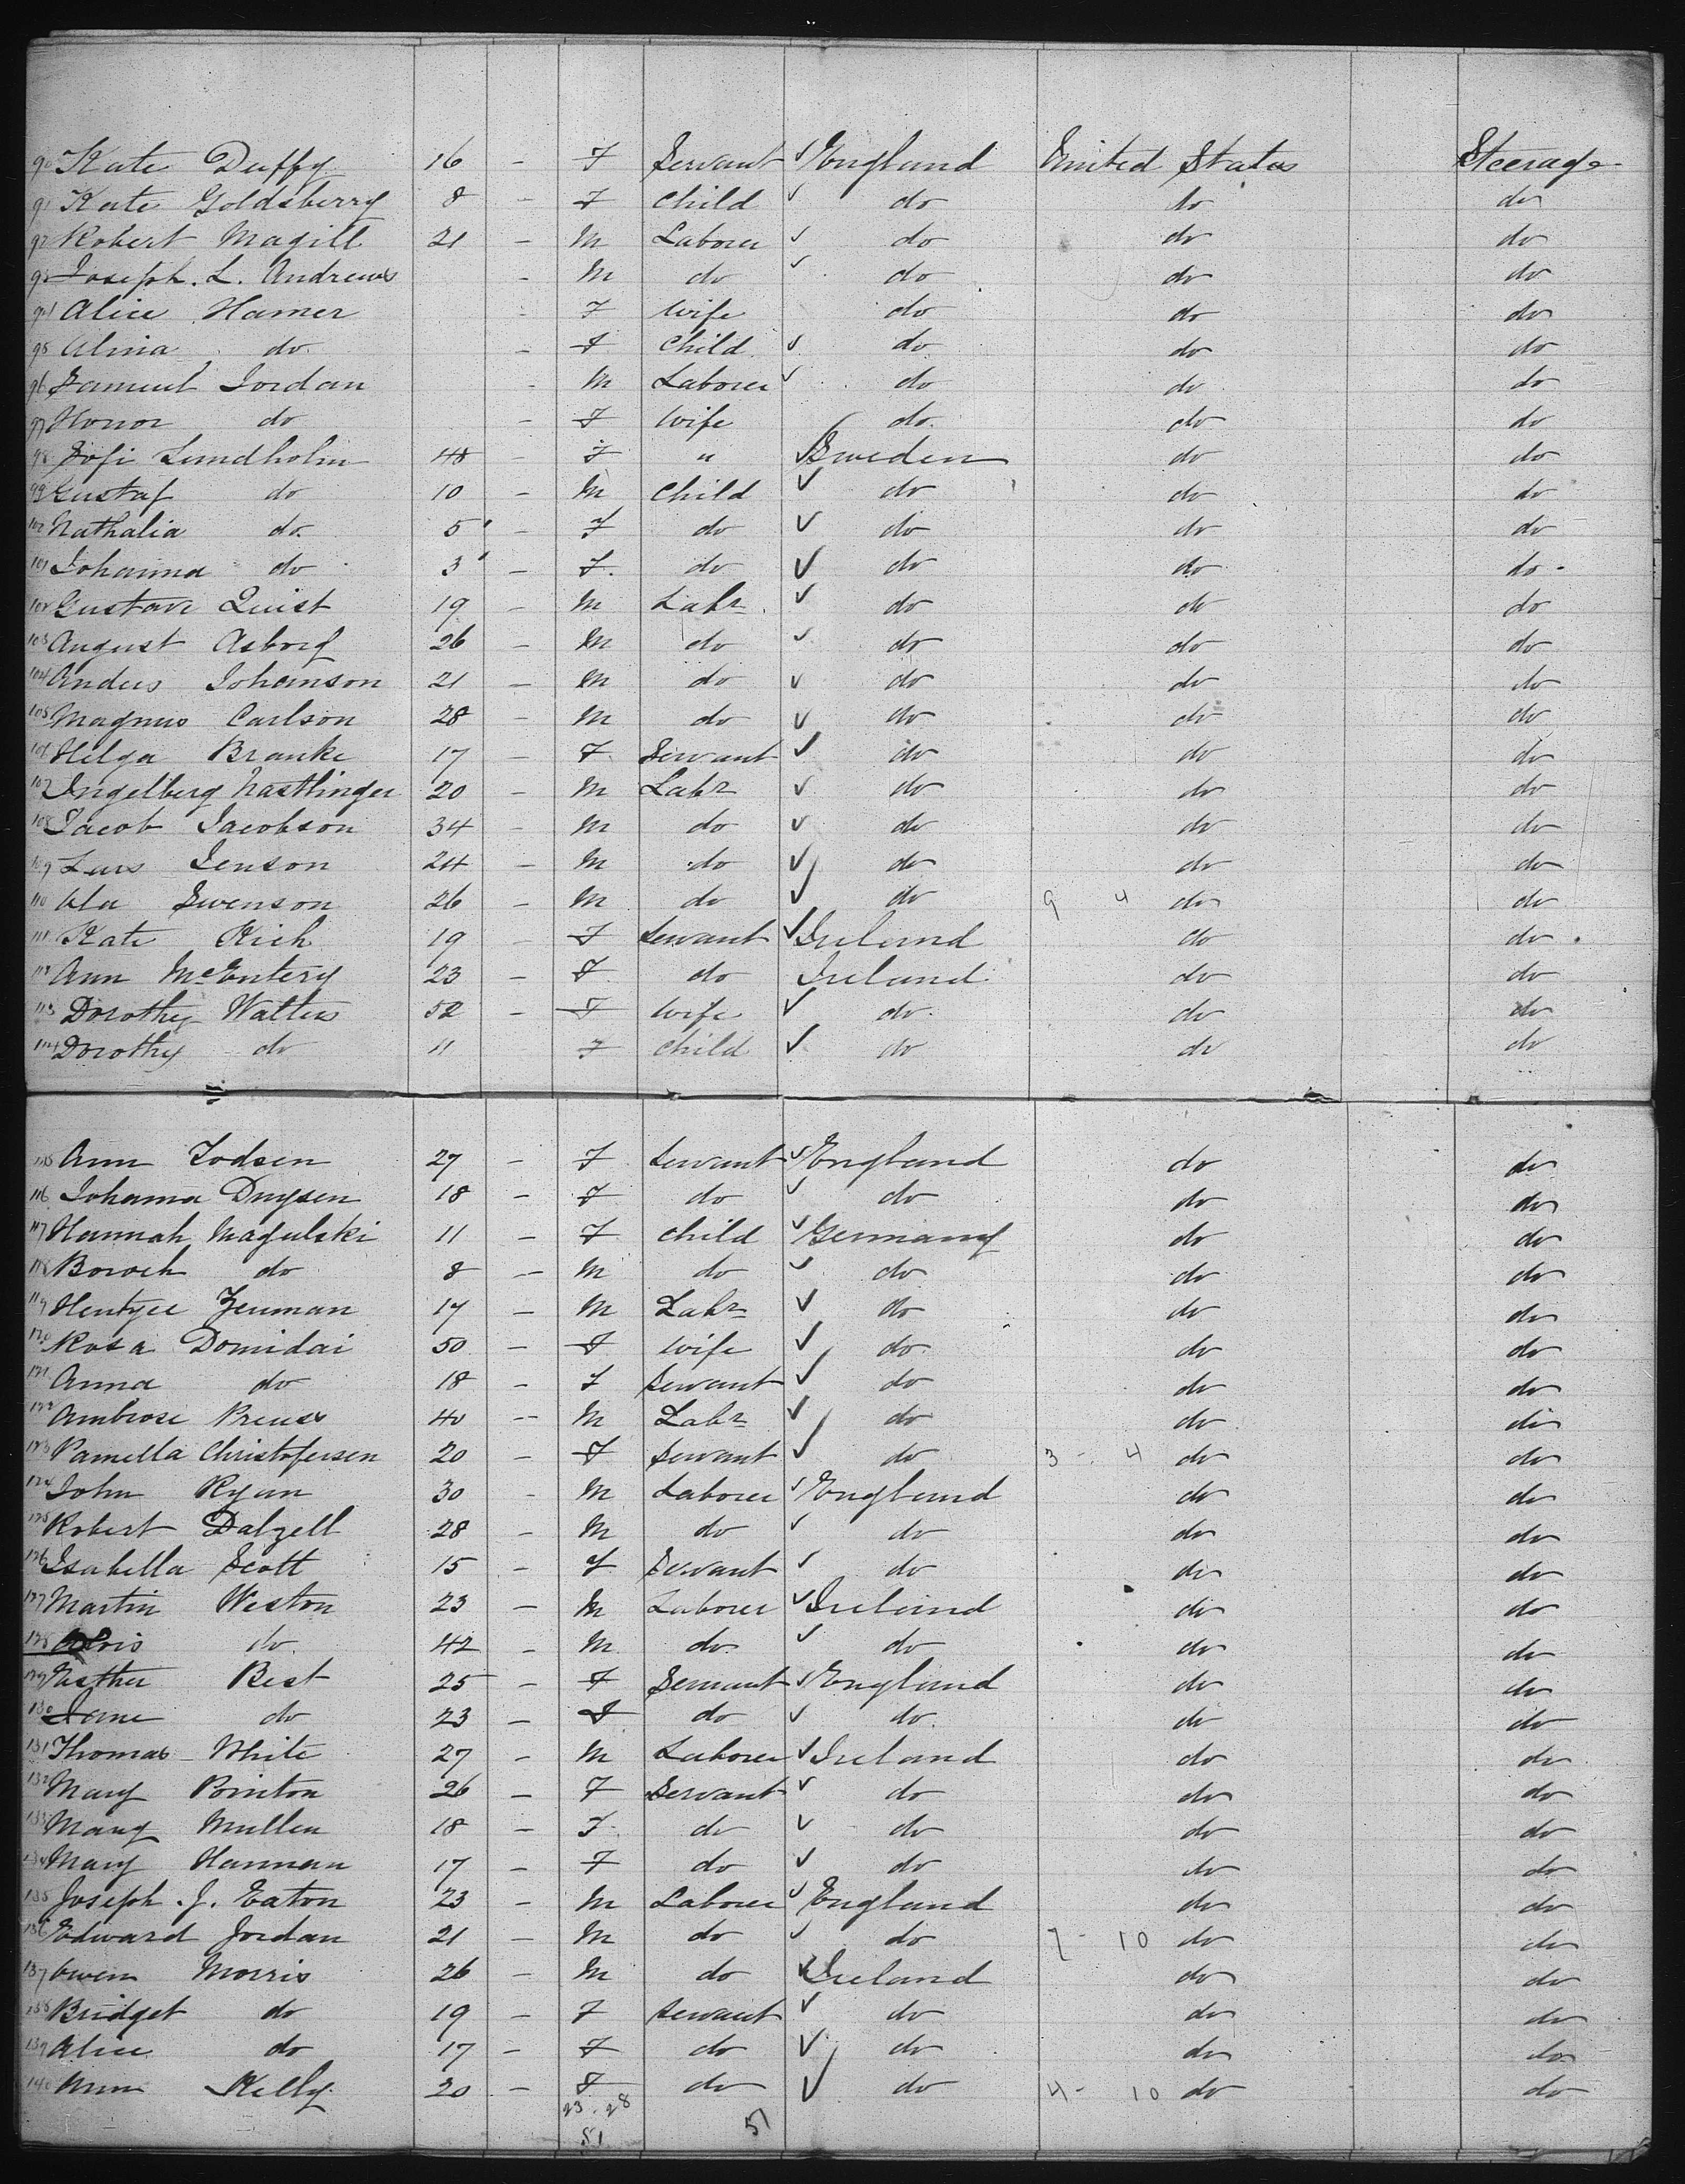 90 Kate Duffy 16 - F Servant ✓ England United States Steerage
91 Kate Goldsberry 8 - F Child ✓ do do do
92 Robert Magill 21 - M Laborer ✓ do do do
93 Joseph. L. Andrews - M do ✓ do do do
94 Alice Hamer - F Wife do do do
95 Alma do - F Child ✓ do do do
96 Samuel Jordan - M Laborer ✓ do do do
97 Honor do - F Wife do do do
98 Sofi Lundholm 48 - F " ✓ Sweden do do
99 Gustaf do 10 - M Child ✓ do do do
100 Nathalia do 5 - F do ✓ do do do
101 Johanna do 3 - F do ✓ do do do
102 Gustave Quist 19 - M Labr ✓ do do do
103 August Asborg 26 - M do ✓ do do do
104 Anders Johanson 21 - M do ✓ do do do
105 Magnus Carlson 28 - M do ✓ do do do
106 Helga Branke 17 - F Servant ✓ do do do
107 Ingelberg Nastlinger 20 - M Labr ✓ do do do
108 Jacob Jacobson 34 - M do ✓ do do do
109 Lars Jenson 24 - M do ✓ do do do
110 Ola Swenson 26 - M do ✓ do 9 4 do do
111 Kate Rich 19 - F Servant ✓ Ireland do do
112 Ann McEntery 23 - F do Ireland do do
113 Dorothy Walters 52 - F Wife ✓ do do do
114 Dorothy do 11 F Child ✓ do do do
115 Ann Todsen 27 - F Servant ✓ England do do
116 Johanna Duysen 18 - F do ✓ do do do
117 Hannah Magulski 11 - F Child ✓ Germany do do
118 Boroch do 8 - M do ✓ do do do
119 Zeuman 17 - M Labr ✓ do do do
120 Rosa Domidai 50 - F Wife ✓ do do do
121 Anna do 18 - F Servant ✓ do do do
122 Ambrose Preuss 40 - M Labr ✓ do do do
123 Pamella Christofersen 20 - F Servant ✓ do 3 - 4 do do
124 John Ryan 30 - M Laborer ✓ England do do
125 Robert Dalzell 28 - M do ✓ do do do
126 Isabella Scott 15 - F Servant ✓ do do do
127 Martin Weston 23 - M Laborer ✓ Ireland do do
128 do 42 - M do ✓ do do do
129 Esther Best 25 - F Servant ✓ England do do
130 Jane do 23 - F do ✓ do do do
131 Thomas White 27 - M Laborer ✓ Ireland do do
132 Mary Pointon 26 - F Servant ✓ do do do
133 Mary Mullen 18 - F do ✓ do do do
134 Mary Hannan 17 - F do ✓ do do do
135 Joseph. J. Eaton 23 - M Laborer ✓ England do do
136 Edward Jordan 21 - M do ✓ do 7 - 10 do do
137 Owen Morris 26 - M do ✓ Ireland do do
138 Bridget do 19 - F Servant ✓ do do do
139 Alice do 17 - F do ✓ do do do
140 Ann Kelly 20 - F do ✓ do 4 - 10 do do
23 . 28
51 51